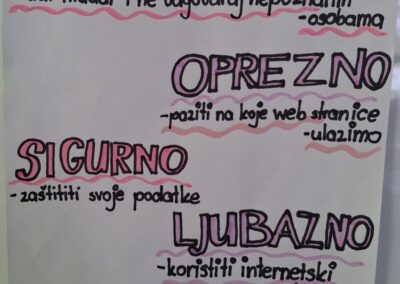 i ne odgovaraj nepoznatim
-osobama
OPREZNO
-paziti na koje web stranice
-ulazimo
SIGURNO
-zaštititi svoje podatke
LJUBAZNO
-koristiti internetski